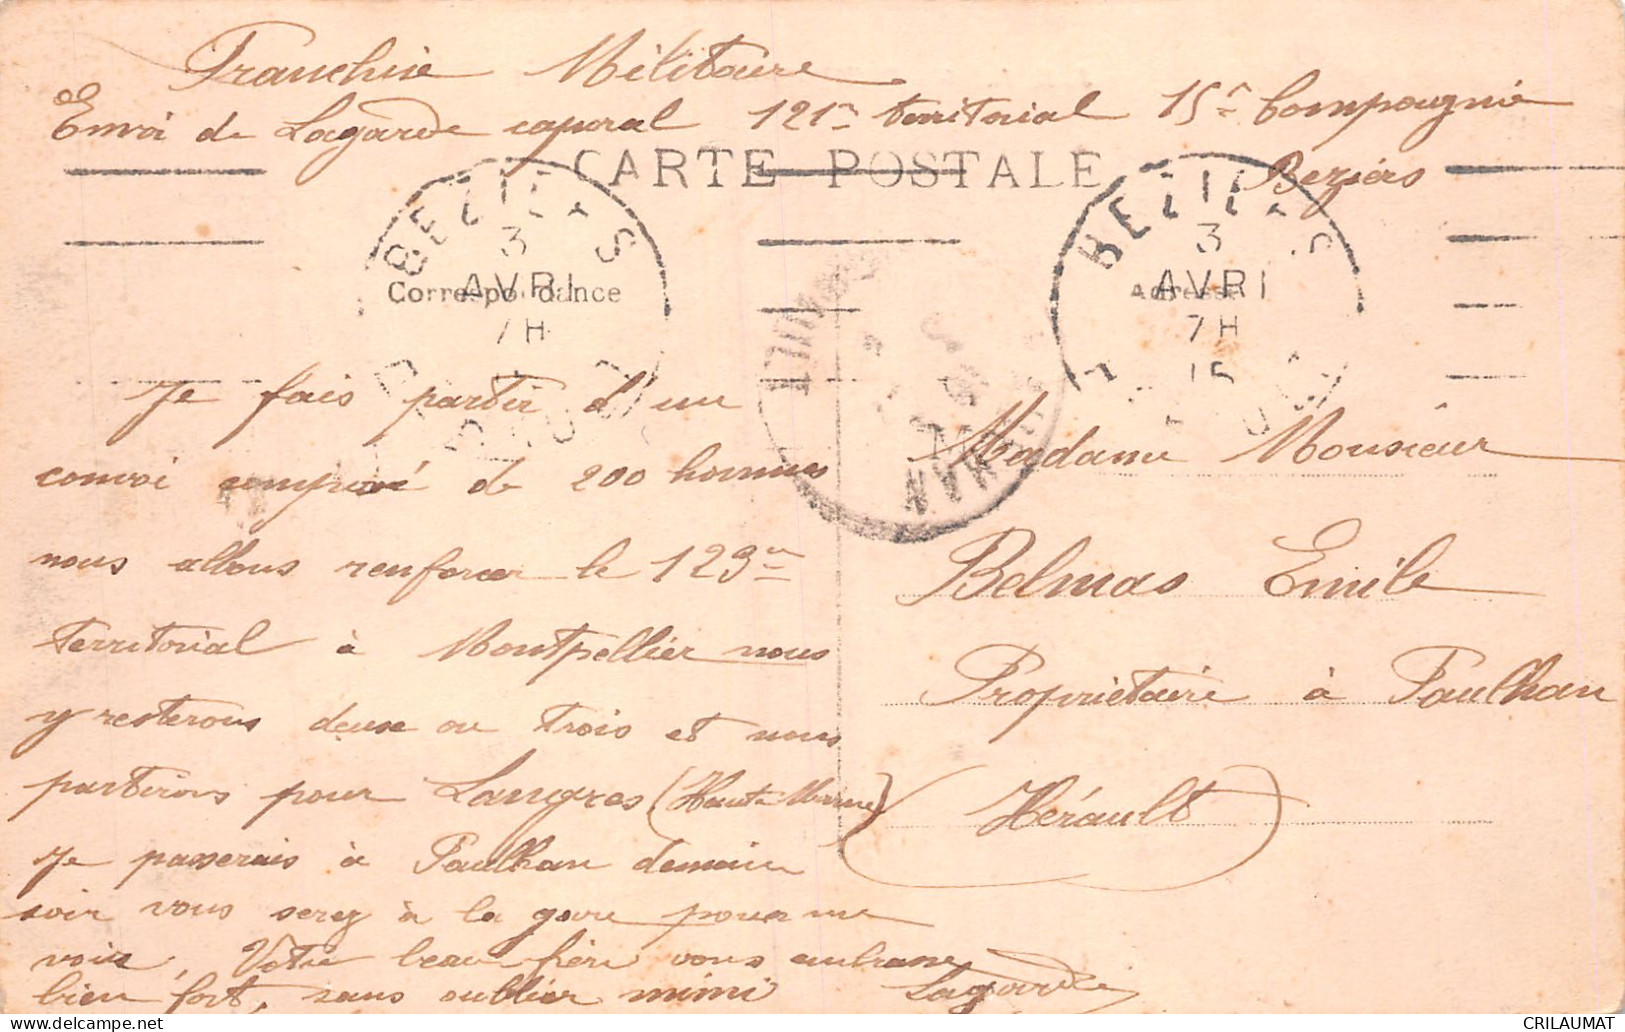 Franchise Militaire
Envoi de Lagarde caporal 121e territorial 15e Compagnie
Beziers
CARTE POSTALE
BEZIERS
3
AVRIL
7H
BEZIERS
3
AVRIL
7H
15
Correspondance
Adresse
Je fais partir d'un
convoi composé de 200 hommes
nous allons renforcer le 129e
territorial à Montpellier nous
y resterons deux ou trois et nous
partirons pour Langres (Haute Marne)
Je passerais à Paulhan demain
soir vous serez à la gare pour me
voir. Votre beau frère vous embrasse
bien fort, sans oublier mimi Lagarde
Madame Monsieur
Belmas Emile
Propriétaire à Paulhan
(Hérault)
CRILAUMAT